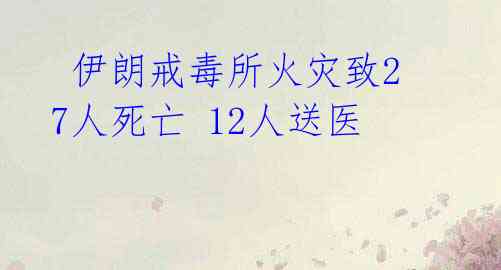 伊朗戒毒所火灾致2
7人死亡 12人送医